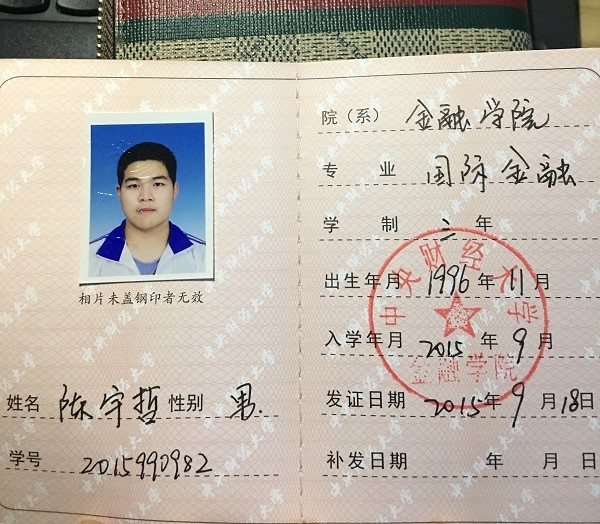 相片未盖钢印者无效
姓名 陈宇哲 性别 男.
学号 2015990982
院（系） 金融学院
专业 国际金融
学制 三年
出生年月 1996年11月
入学年月 2015年9月
发证日期 2015年9月18日
补发日期 年 月 日
中央财经大学
金融学院